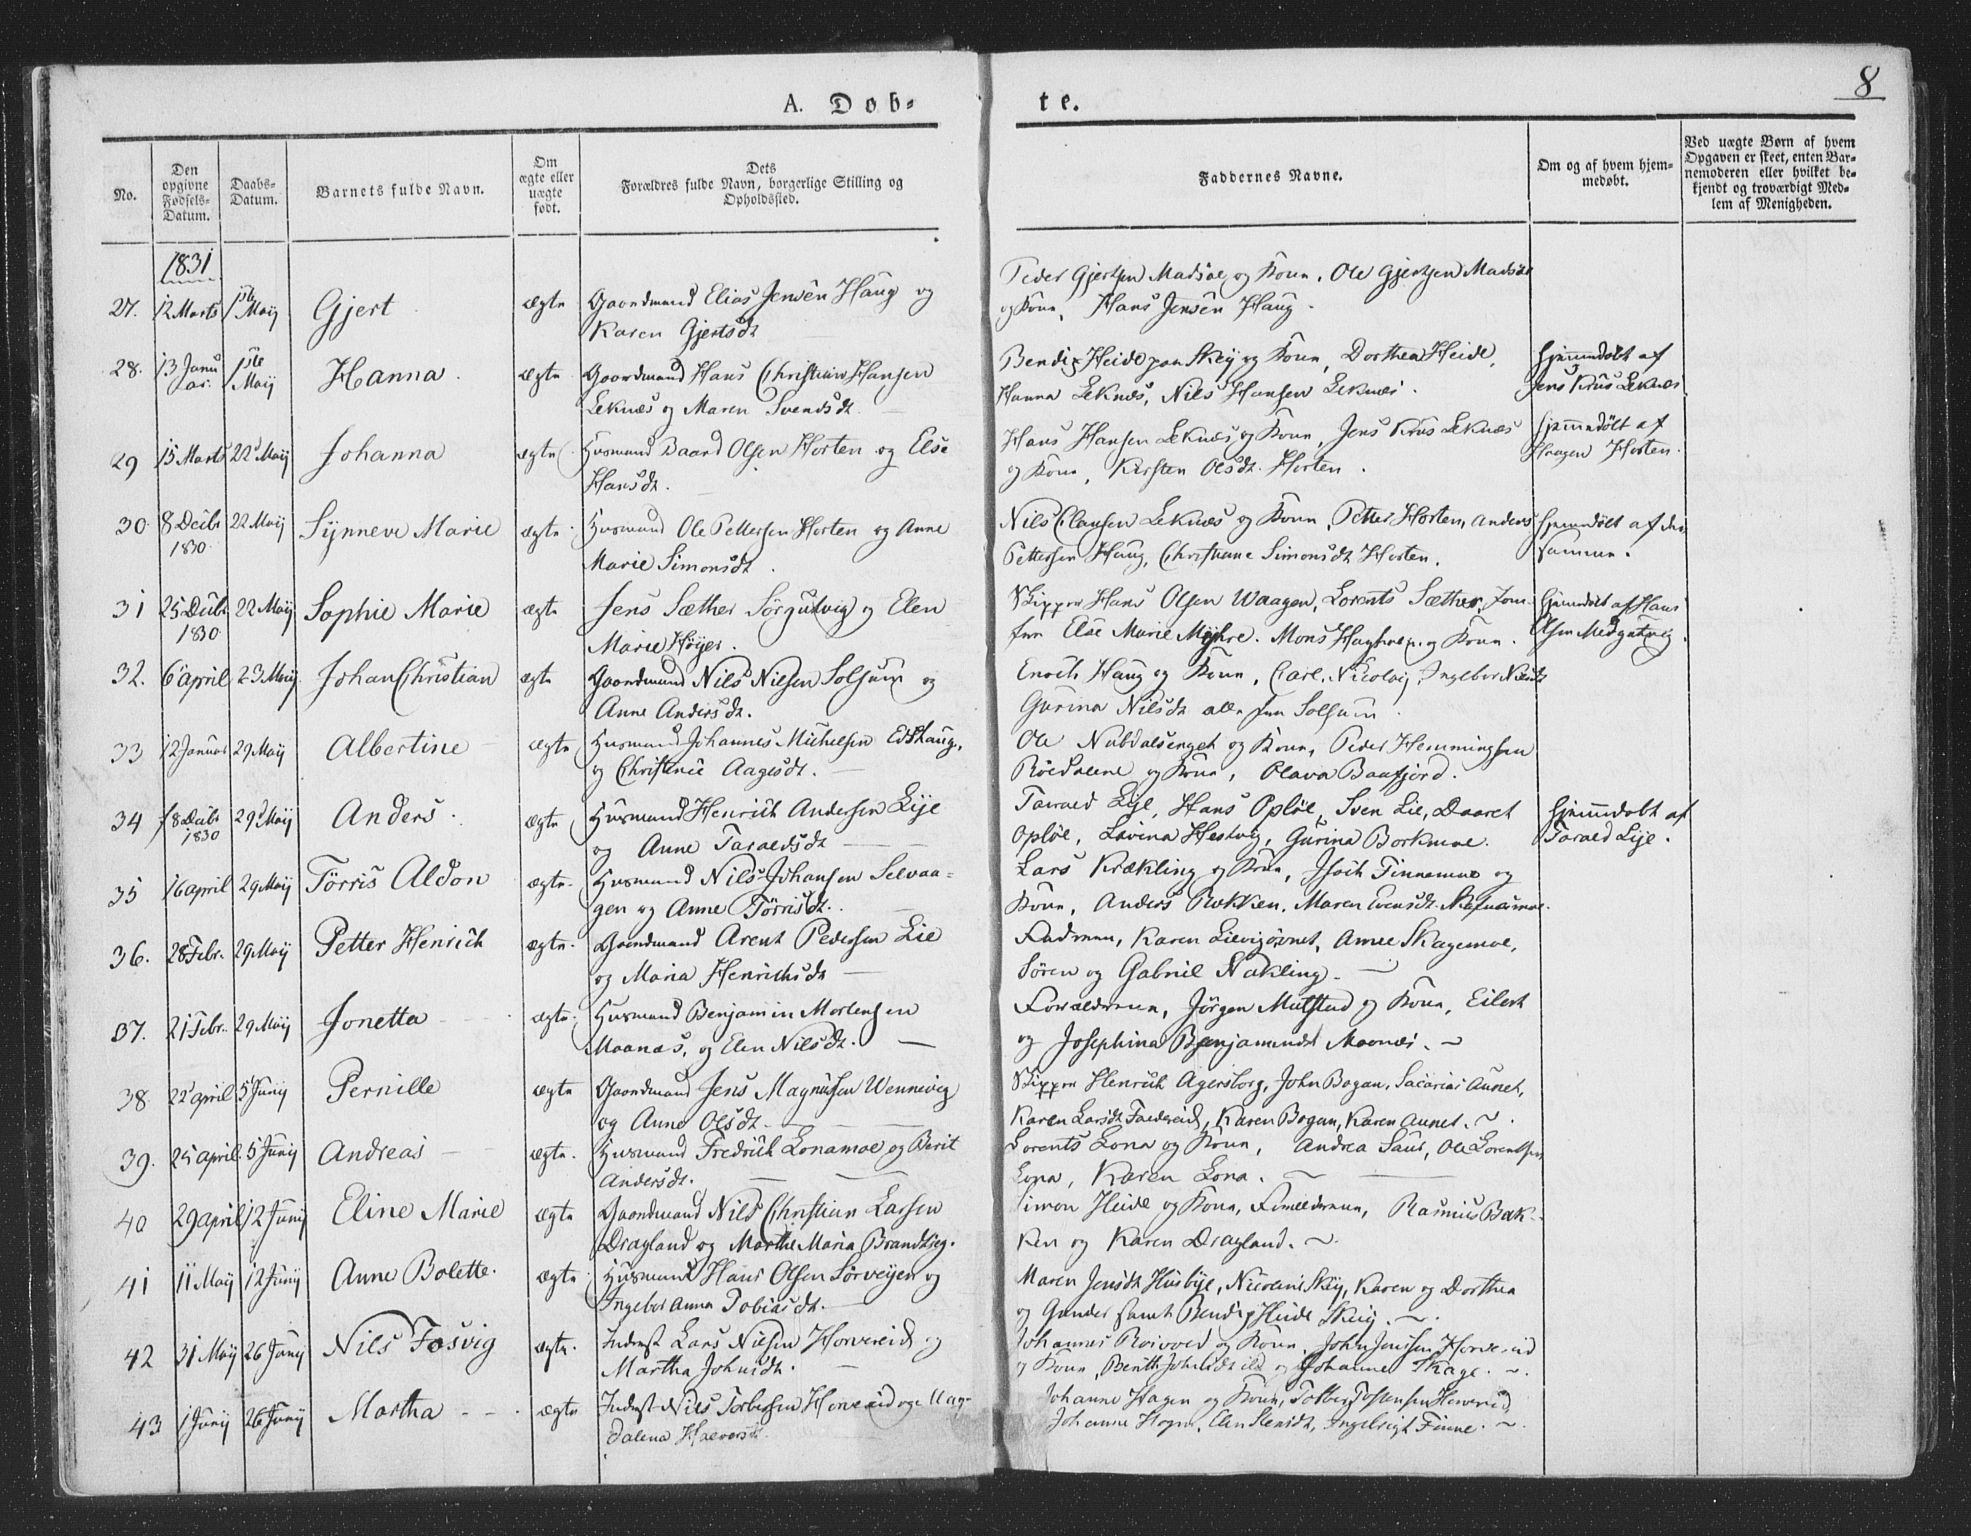 8
A. Døb-
te.
No.
Den opgivne Fødsels-Datum.
Daabs-Datum.
Barnets fulde Navn.
Om ægte eller uægte født.
Dets Forældres fulde Navn, borgerlige Stilling og Opholdssted.
Faddernes Navne.
Om og af hvem hjemmedøbt.
Ved uægte Børn af hvem Opgaven er skeet, enten Barnemoderen eller hvilket bekjendt og troværdigt Medlem af Menigheden.
1831
27. 12 Marts 1ste Maij Gjert ægte Gaardmand Elias Jensen Haug og
Karen Gjertsdt
Peder Gjertsen Madsøe og Kone, Ole Gjertsen Madsøe
og Kone, Hans Jensen Haug.
28. 13 Janu ar. 1ste Maij Hanna. ægte Gaardmand Hans Christian Hansen
Leknæs og Maren Svendsdt.
Bendix Heide paa Skey og Kone, Dorthea Heide,
Hanna Leknæs, Nils Hansen Leknæs.
Hjemmedøbt af
Jens Krüs Leknæs
29 15 Marts 22 Maij Johanna ægte Husmand Baard Olsen Horten og Else
Hansdt.
Hans Hansen Leknæs og Kone, Jens Krüs Leknæs
og Kone, Kirsten Olsdt. Horten.
Hjemmedøbt af
Haagen Horten.
30. 8 Decbr 1830. 22 Maij Synneve Marie ægte Husmand Ole Pettersen Horten og Anne
Marie Simonsdt.
Nils Clausen Leknæs og Kone, Petter Horten, Anders
Pettersen Haug, Christiane Simonsdt Horten.
Hjemmedøbt af den
samme.
31 25 Decbr. 1830 22 Maij Sophie Marie ægte Jens Sæther Sørgutvig og Elen
Marie Høyer.
Skipper Hans Olsen Waagen, Lorents Sæther, Jom-
fru Else Marie Myhre. Mons og Kone.
Hjemdøbt af Hans
Olsen Medgutvig.
32. 6 april 23 Maij Johan Christian ægte Gaardmand Nils Nilsen Solsum og
Anne Andersdt.
Enoch Haug og Kone, Carl, Nicolai, Ingebor Nilsdt
Gurina Nilsdt alle fra Solsum.
33 12 Januar 29 Maij Albertine ægte Husmand Johannes Michelsen Edshaug,
og Christence Aagesdt.
Ole Nubdalsenget og Kone, Peder Hemmingsen
Röedalene og Kone, Olava Baafjord.
34 18 Decbr 1830 29 Maij Anders. ægte Husmand Henrich Andersen Lije
og Anne Taraldsdt
Tarald Lije, Hans Opløe, Sven Lie, Baaret
Opløe, Lovina Hestvig, Gurina Borkmoe.
Hjemmedøbt af
Tarald Lije.
35 16 april 29 Maij Törris Aldon ægte. Husmand Nils Johansen Selvaa-
gen og Anne Törrisdt.
Lars Krækling og Kone, Isach Finnemoe og
Kone, Anders Rokken, Maren Evensdt.
36. 28 Febr. 29 Maij Petter Henrich ægte. Gaardmand Arent Pedersen Lie
og Maria Henrichsdt
Faderen, Karen, Anne Skagemoe,
Søren og Gabriel Nakling.
37. 21 Febr. 29 Maij Jonetta ægte. Husmand Benjamin Mortensen
Moanæs, og Elen Nilsdt.
Forældrene, Jørgen Mulstad og Kone, Eilert
og Josephina Benjaminsdt Moanæs.
38 22 april 5 Junij Pernille ægte Gaardmand Jens Magnussen Wennevig
og Anne Olsdt.
Skipper Henrich Agersborg, John Bogan, Sacarias Aunet,
Karen Larsdt Fardereid, Karen Bogan, Karen Aunet.
39. 25 april. 5 Junij Andreas ægte. Husmand Fredrich Lonamoe og Berit
Andersdt.
Lorents Lona og Kone, Andrea Saur, Ole Lorentsen
Lona, Karen Lona.
40 29 april 12 Junij Eline Marie ægte Gaardmand Nils Christian Larsen
Dragland og Marthe Maria Brandtseg.
Simon Heide og Kone, Forældrene, Rasmus Bak-
ken og Karen Dragland.
41 11 Maij 12 Junij Anne Bolette. ægte Husmand Hans Olsen Sörveyen og
Ingebor Anna Tobiasdt.
Maren Jensdt Husbye, Nicolene Skey, Karen og Dorthea
og Gunder samt Bendix Heide Skey.
42 31 Maij 26 Junij Nils Fosvig ægte. Inderst Lars Nilsen Horvereid og
Martha Johnsdt.
Johannes Roivold og Kone, John Jensen Horvereid
og Kone, Johanne Skage.
43 1 Junij 26 Junij Martha ægte Inderst Nils Torbersen Horvereid og Mag-
dalena Halvorsdt.
Johanne Hagen og Kone, Horvereid,
Johanne Ingebrigt Finne.